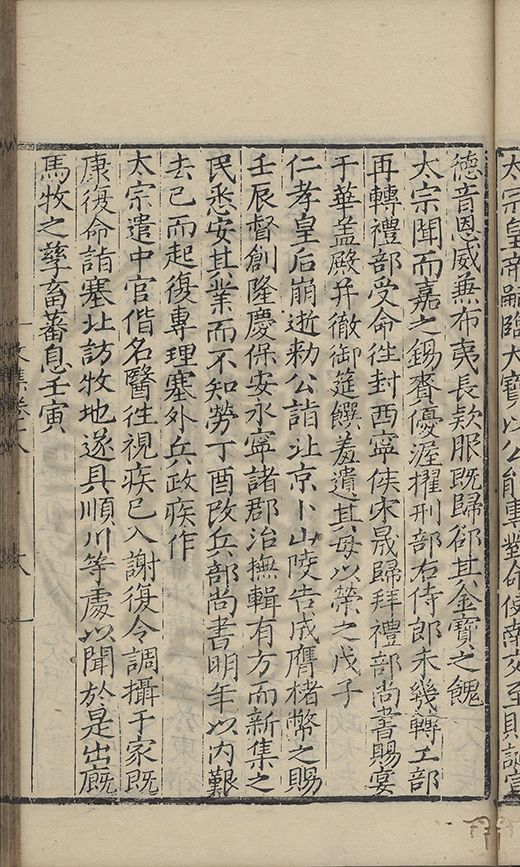 太宗皇帝嗣臨大寶以公能專對命使南交至則諭宣
德音恩威兼布夷長欵服旣歸郤其金寶之餽
太宗聞而嘉之錫賚優渥擢刑部右侍郎未幾轉工部
再轉禮部受命徃封西寧侯宋晟歸拜禮部尚書賜宴
于華盖殿并徹御筵饌羞遺其母以榮之戊子
仁孝皇后崩逝勑公詣北京卜山陵告成膺楮幣之賜
壬辰督創隆慶保安永寧諸郡治撫輯有方而新集之
民悉安其業而不知勞丁酉改兵部尚書明年以内艱
去已而起復專理塞外兵政疾作
太宗遣中官偕名醫徃視疾已入謝復令調攝于家旣
康復命詣塞北訪牧地遂具順川等處以聞於是出厩
馬牧之孳畜蕃息壬寅
文集卷之八